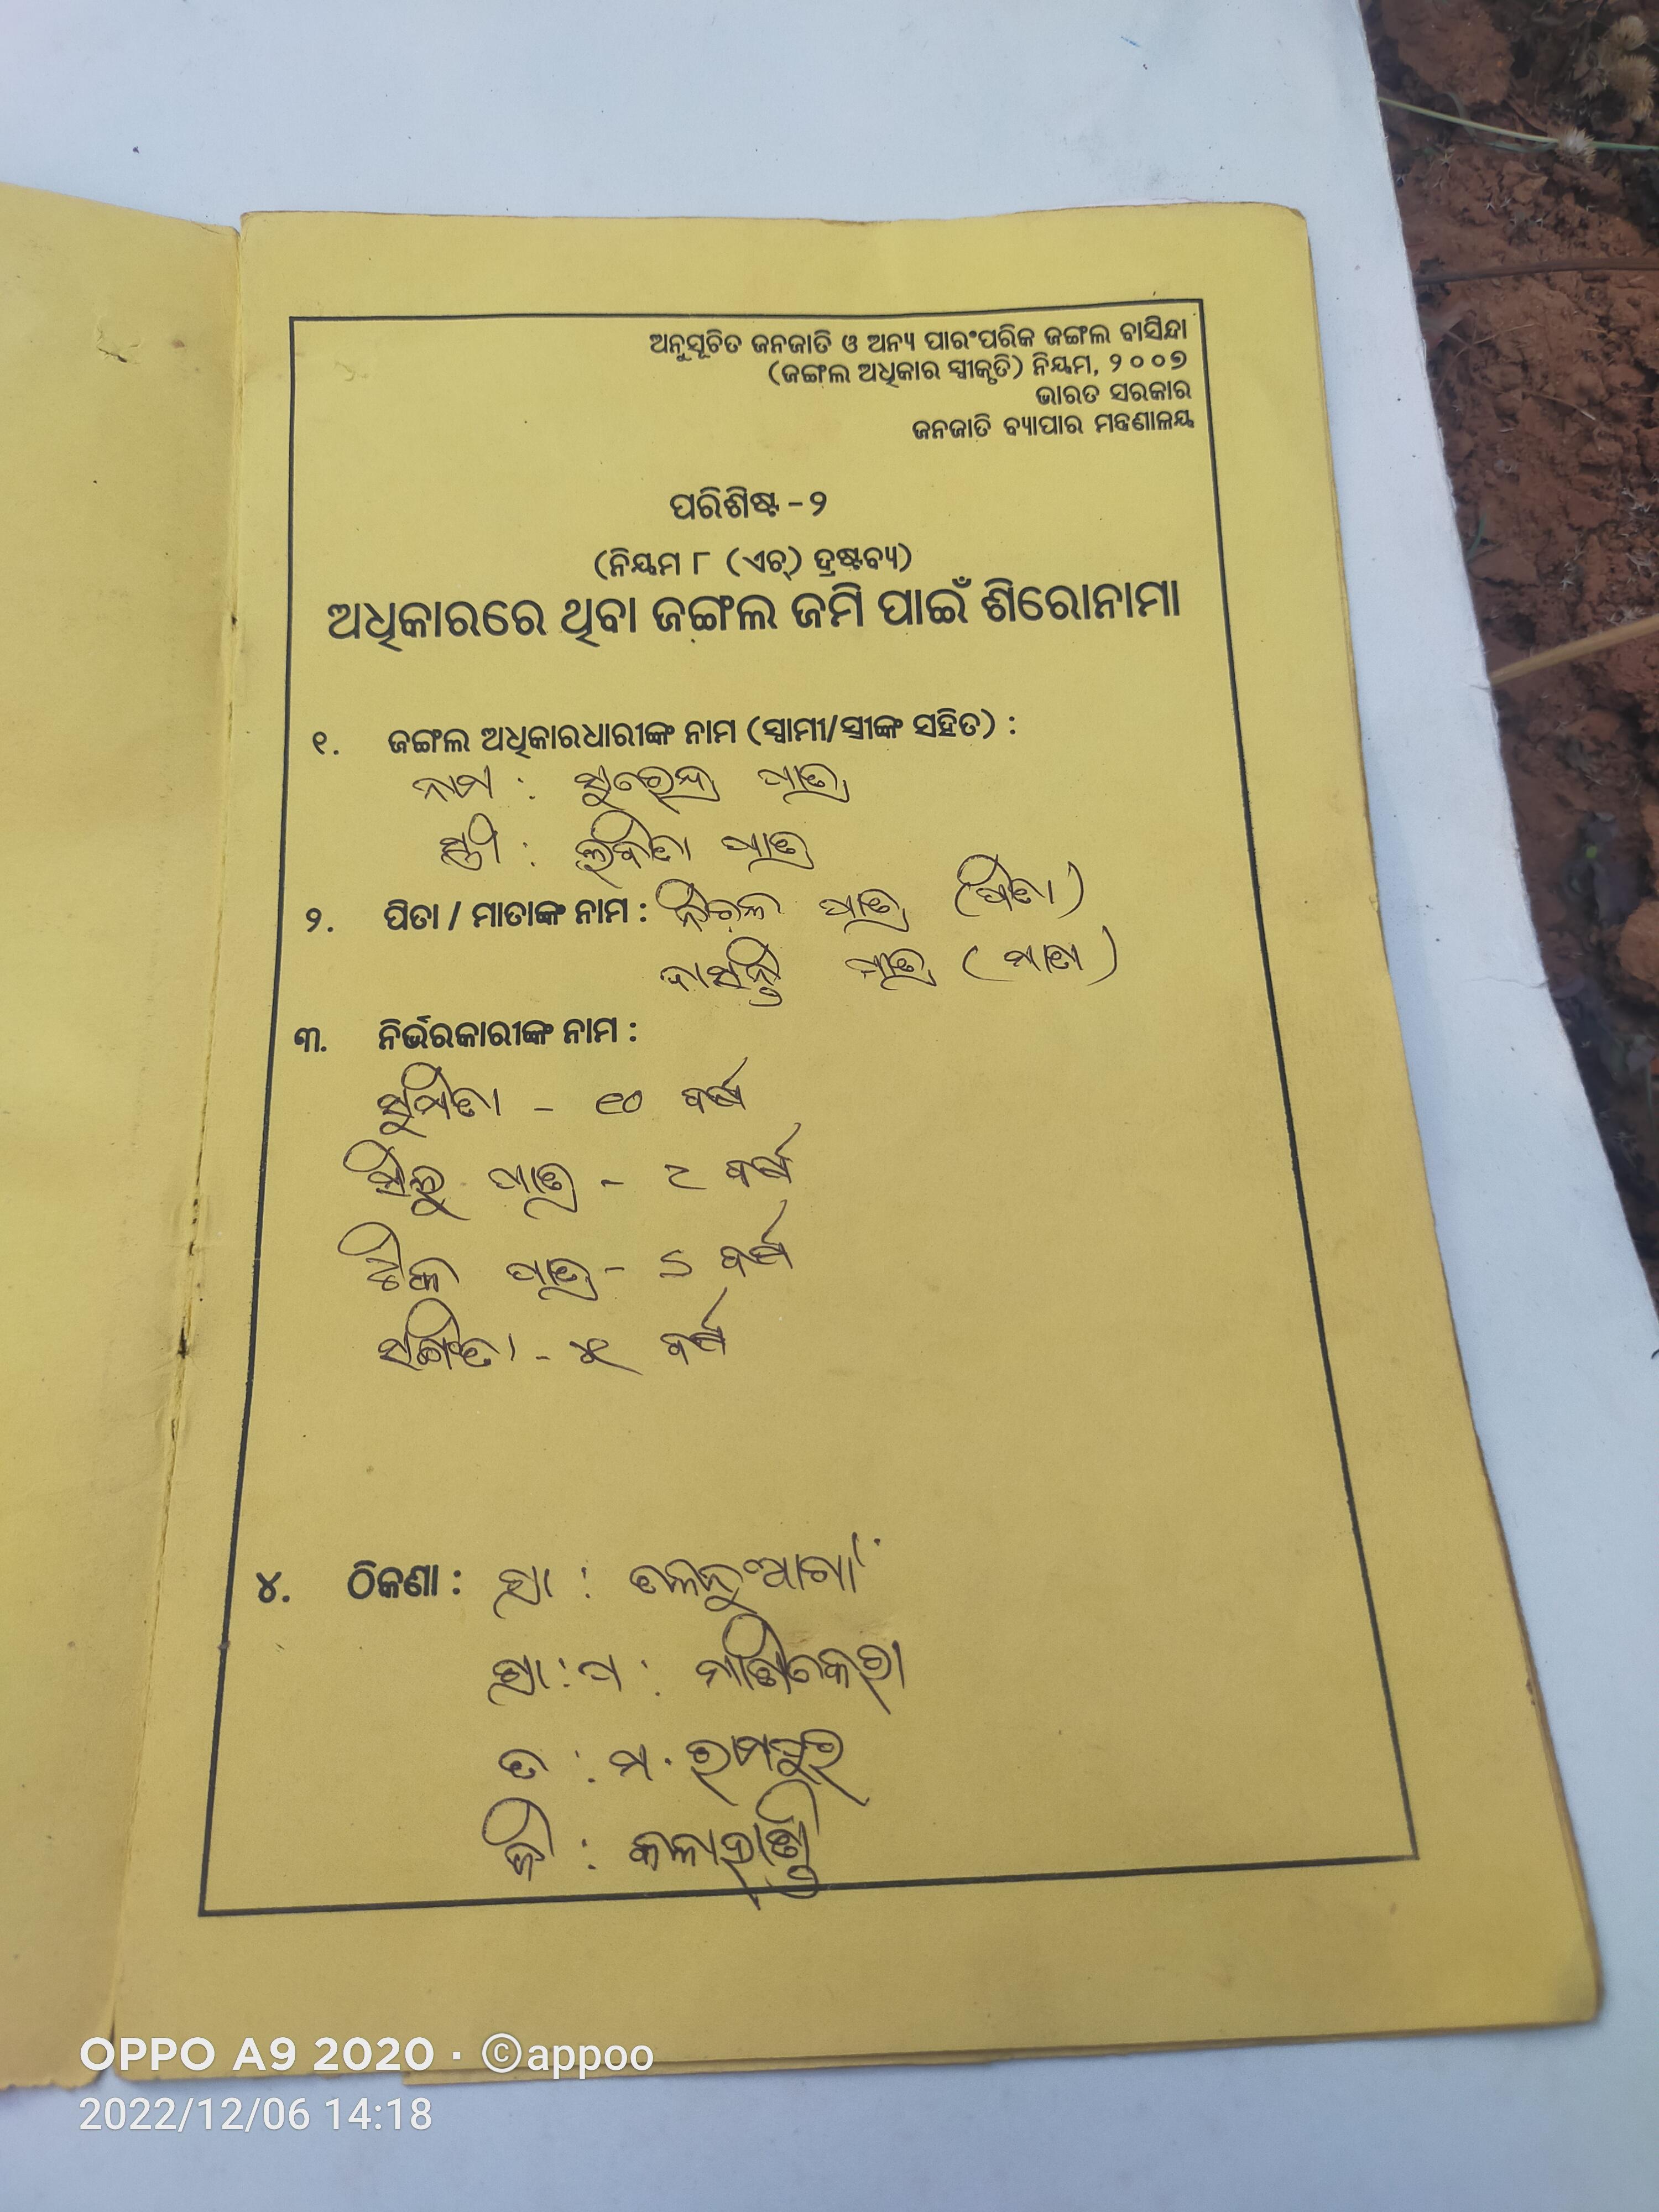 ଅନୁସୂଚିତ ଜନଜାତି ଓ ଅନ୍ୟ ପାରଂପରିକ ଜଙ୍ଗଲ ବାସିନ୍ଦା
(ଜଙ୍ଗଲ ଅଧିକାର ସ୍ୱୀକୃତି) ନିୟମ, ୨୦୦୭
ଭାରତ ସରକାର
ଜନଜାତି ବ୍ୟାପାର ମନ୍ତ୍ରଣାଳୟ
ପରିଶିଷ୍ଟ - ୨
(ନିୟମ ୮ (ଏଚ୍) ଦ୍ରଷ୍ଟବ୍ୟ)
ଅଧିକାରରେ ଥିବା ଜଙ୍ଗଲ ଜମି ପାଇଁ ଶିରୋନାମା
୧. ଜଙ୍ଗଲ ଅଧିକାରଧାରୀଙ୍କ ନାମ (ସ୍ୱାମୀ/ସ୍ତ୍ରୀଙ୍କ ସହିତ) :
ନାମ : ସୁରେନ୍ଦ୍ର ପାତ୍ର
ସ୍ତ୍ରୀ : ପାତ୍ର
୨. ପିତା / ମାତାଙ୍କ ନାମ : ପାତ୍ର (ପିତା)
ପାତ୍ର (ମାତା)
୩. ନିର୍ଭରକାରୀଙ୍କ ନାମ :
ସୁମିତା - ୧୦ ବର୍ଷ
ପାତ୍ର - ୮ ବର୍ଷ
ପାତ୍ର - ବର୍ଷ
ବର୍ଷ
୪. ଠିକଣା : ଗ୍ରା :
ଗ୍ରା : ପ :
ତ : ମ. ରାମପୁର
ଜି : କଳାହାଣ୍ଡି
OPPO A9 2020 · ©appoo
2022/12/06 14:18